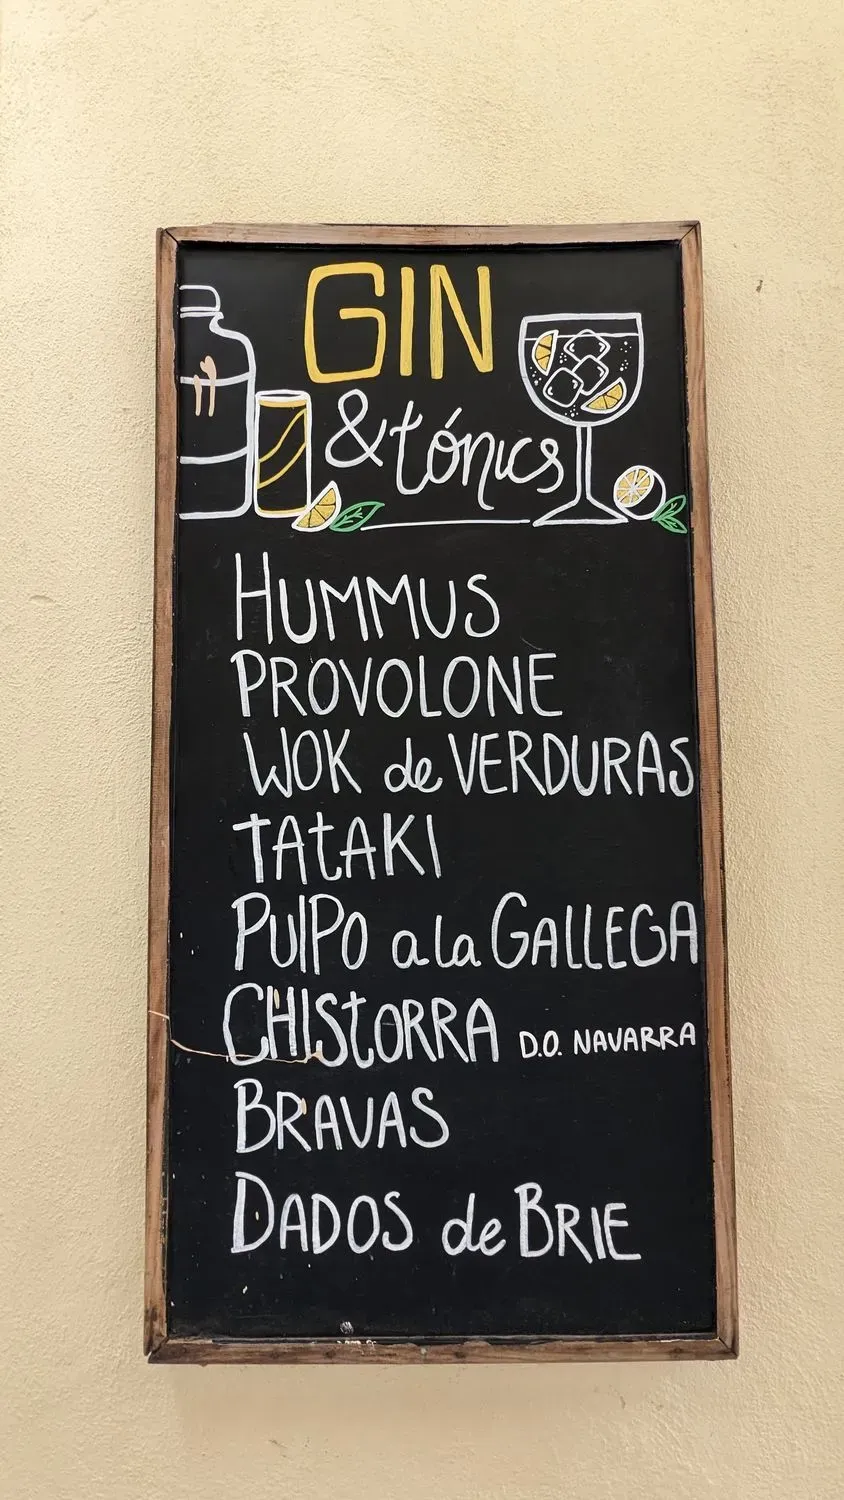 GIN
& tónics
HUMMUS
PROVOLONE
WOK de VERDURAS
TATAKI
PULPO a la GALLEGA
CHISTORRA D.O. NAVARRA
BRAVAS
DADOS de BRIE